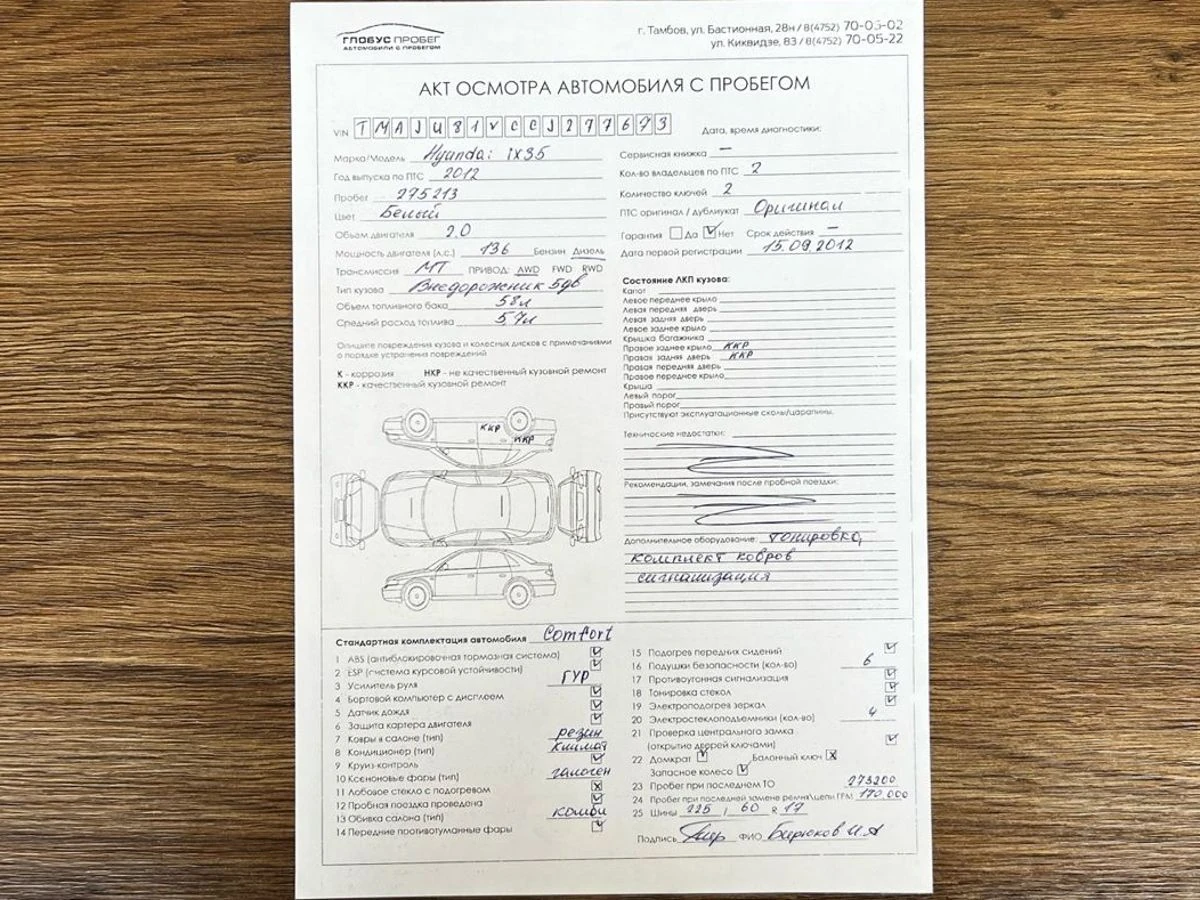 ГЛОБУС ПРОБЕГ
АВТОМОБИЛИ С ПРОБЕГОМ
г. Тамбов, ул. Бастионная, 28н / 8(4752) 70-05-02
ул. Киквидзе, 83 / 8(4752) 70-05-22
АКТ ОСМОТРА АВТОМОБИЛЯ С ПРОБЕГОМ
VIN TMAJU81VCCJ277673
Дата, время диагностики:
Марка/Модель Hyundai ix35
Год выпуска по ПТС 2012
Пробег 275213
Цвет Белый
Объем двигателя 2.0
Мощность двигателя (л.с.) 136 Бензин Дизель
Трансмиссия МТ ПРИВОД: AWD FWD RWD
Тип кузова Внедорожник 5дв
Объем топливного бака 58л
Средний расход топлива 5,7л
Сервисная книжка –
Кол-во владельцев по ПТС 2
Количество ключей 2
ПТС оригинал / дубликат Оригинал
Гарантия Да Нет Срок действия –
Дата первой регистрации 15.09.2012
Опишите повреждения кузова и колесных дисков с примечаниями
о порядке устранения повреждений
К - коррозия НКР - не качественный кузовной ремонт
ККР - качественный кузовной ремонт
ККР
ККР
Состояние ЛКП кузова:
Капот
Левое переднее крыло
Левая передняя дверь
Левая задняя дверь
Левое заднее крыло
Крышка багажника
Правое заднее крыло ККР
Правая задняя дверь ККР
Правая передняя дверь
Правое переднее крыло
Крыша
Левый порог
Правый порог
Присутствуют эксплуатационные сколы/царапины.
Технические недостатки:
Рекомендации, замечания после пробной поездки:
Дополнительное оборудование: тонировка,
комплект ковров
сигнализация
Стандартная комплектация автомобиля Comfort
1 ABS (антиблокировочная тормозная система)
2 ESP (система курсовой устойчивости)
3 Усилитель руля ГУР
4 Бортовой компьютер с дисплеем
5 Датчик дождя
6 Защита картера двигателя
7 Ковры в салоне (тип) резин
8 Кондиционер (тип) климат
9 Круиз-контроль
10 Ксеноновые фары (тип) галоген
11 Лобовое стекло с подогревом
12 Пробная поездка проведена
13 Обивка салона (тип) комби
14 Передние противотуманные фары
15 Подогрев передних сидений
16 Подушки безопасности (кол-во) 6
17 Противоугонная сигнализация
18 Тонировка стекол
19 Электроподогрев зеркал
20 Электростеклоподъемники (кол-во) 4
21 Проверка центрального замка
(открытие дверей ключами)
22 Домкрат Балонный ключ
Запасное колесо
23 Пробег при последнем ТО 273200
24 Пробег при последней замене ремня\цепи ГРМ 170.000
25 Шины 225 / 60 R 17
Подпись ФИО Бирюков И.А